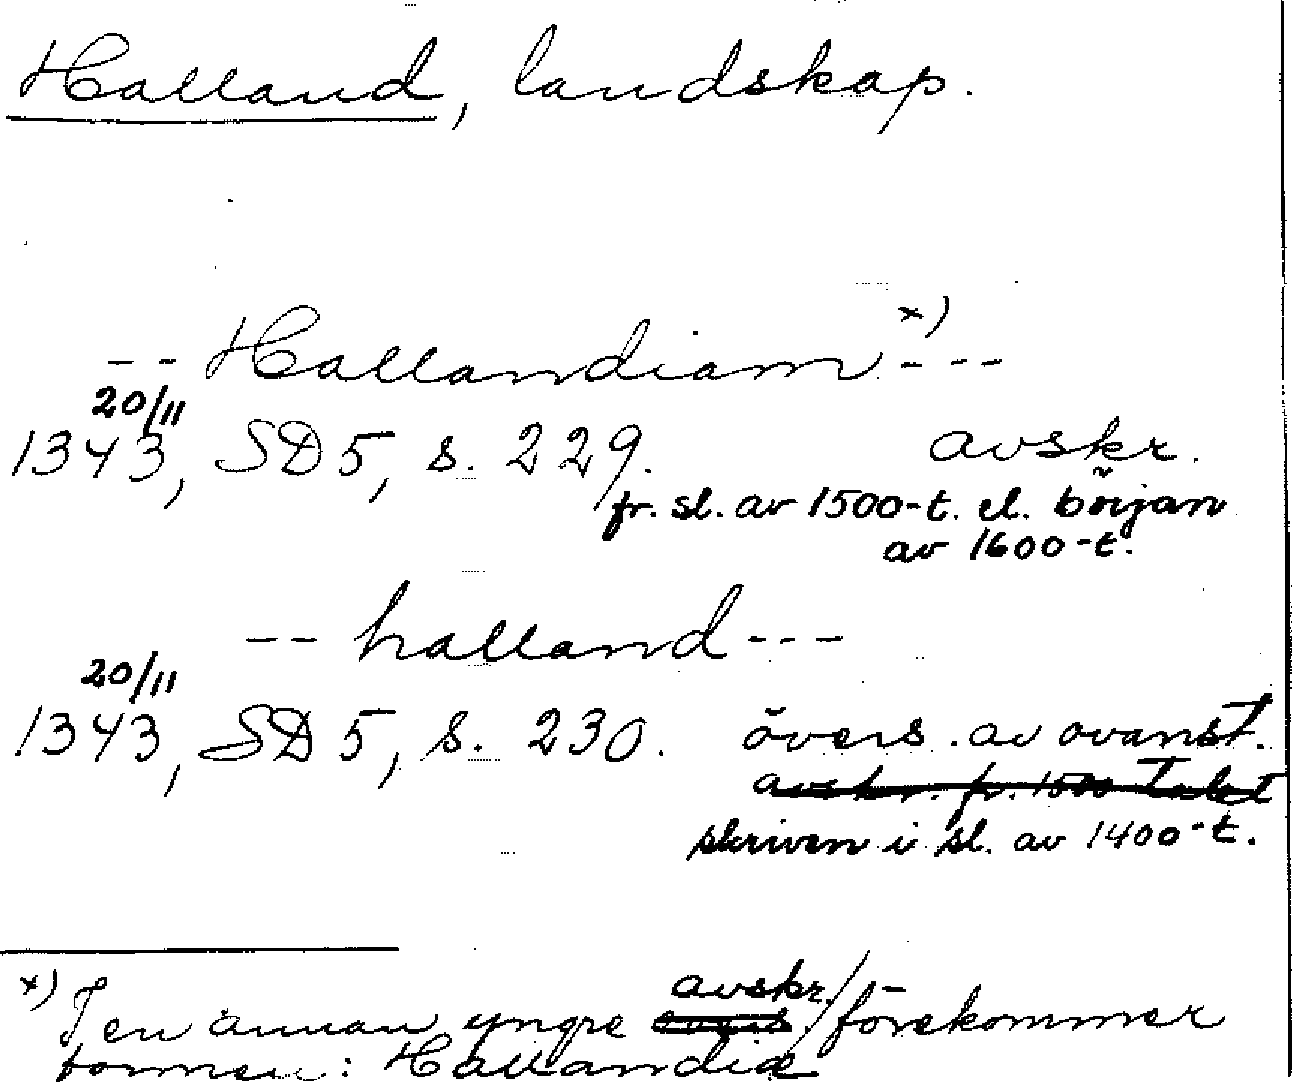 Halland, landskap.
-- Hallandiam x) ---
20/11
1343, SD 5, s. 229. avskr.
fr. sl. av 1500-t. el. början
av 1600-t.
-- halland ---
20/11
1343, SD 5, s. 230. övers. av ovanst.
avskr. fr. 1500 talet
skriven i sl. av 1400-t.
avskr.
x) I en annan yngre / förekommer
formen: Hallandiæ